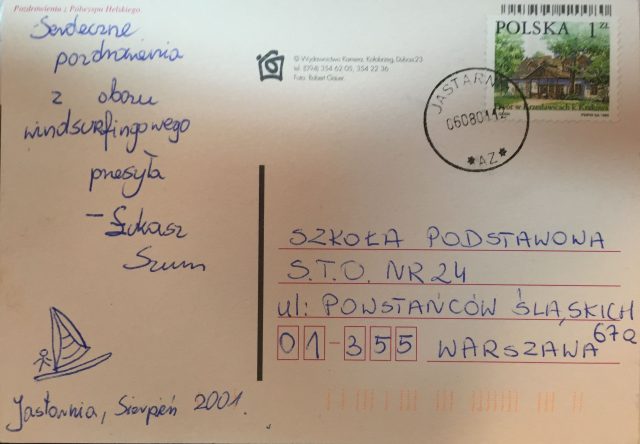 Pozdrowienia z Półwyspu Helskiego
Serdeczne
pozdrowienia
z obozu
windsurfingowego
przesyła
– Łukasz
Szum
Jastarnia, Sierpień 2001.
© Wydawnictwo Kamera, Kołobrzeg, Dubois 23
tel. (094) 354 62 05, 354 22 36
Foto. Robert Gauer.
POLSKA 1 ZŁ
Dwór w Krzesławicach k. Krakowa
JASTARN
06080112
*AZ*
SZKOŁA PODSTAWOWA
S.T.O. NR 24
ul: POWSTAŃCÓW ŚLĄSKICH
67a
01-355 WARSZAWA